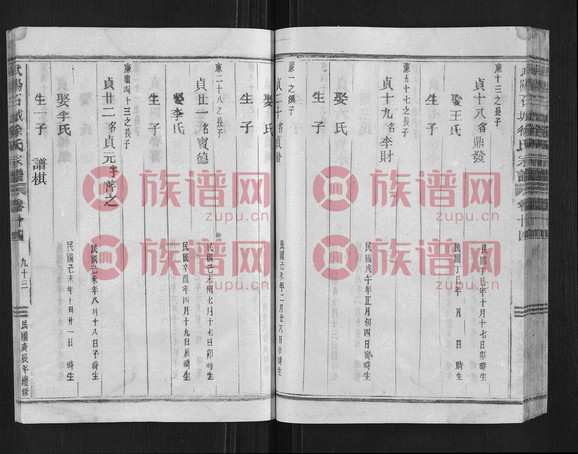 武陽石城徐氏宗譜 卷十四
東十三之長子
貞十八 名鼎發
民國丁巳年十月十七日卯時生
娶王氏
民國丁巳年 月 日 時生
生 子
東五十七之長子
貞十九 名李財
民國戊午年五月初四日 時生
娶 氏
生 子
東一之 子
貞二十 名貞
民國己未年二月廿八日 時生
娶 氏
生 子
東二十八之長子
貞廿一 名賓德
民國己未 七月十七日卯時生
娶李氏
民國辛酉年四月十九日辰時生
生 子
東 四十三之長子
貞廿二 名貞元 字普之
民國己未年八月十八日子時生
娶李氏
民國己未年十月廿一日 時生
生一子 譜棋
武陽石城徐氏宗譜 卷十四 九十三 民國庚辰年續修
族谱网
zupu.cn
族谱网
zupu.cn
族谱网
zupu.cn
族谱网
zupu.cn